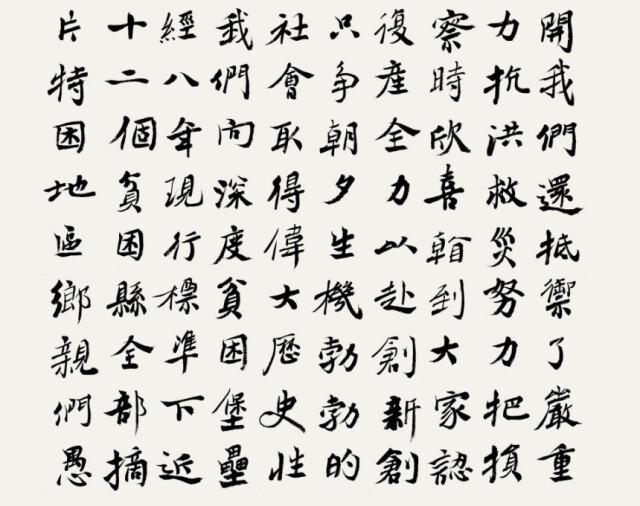 開我們還抵禦了嚴重
力抗洪救災努力把損
察時欣喜看到大家認
復產全力以赴創新創
只争朝夕生機勃勃的
社會取得偉大歷史性
我們向深度貧困堡壘
經八年現行標準下近
十二個貧困縣全部摘
片特困地區鄉親們愚